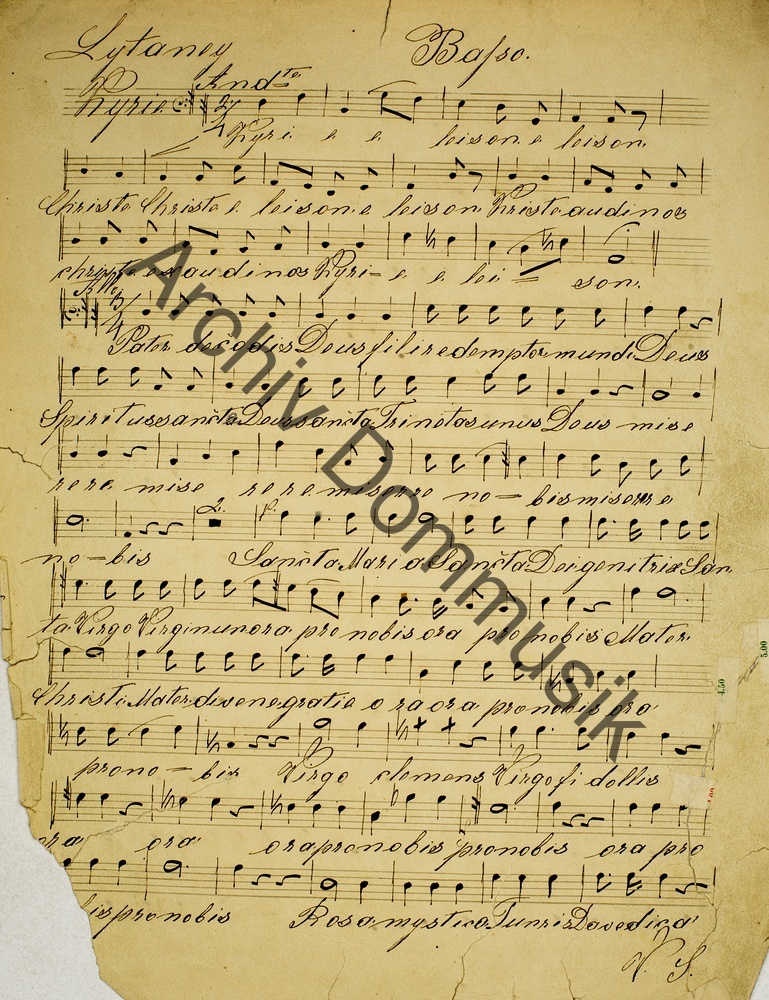 Lytaney Basso.
Kyrie And^te
Kyri e e leison e leison
Christe Christe e leison e leison Christe audi nos
christe exaudi nos Kyri = e e lei = son.
All^o
Pater de cœlis Deus fili redemptor mundi Deus
Spiritus sancta Deus sancta Trinitas unus Deus mise
rere mise rere miserere no = bis miserere
no = bis Sancta Maria Sancta Dei genitrix San
ta Virgo Virginum ora pro nobis ora pro nobis Mater
Christi Mater divene gratie o ra ora pro nobis ora
pro no = bis Virgo clemens Virgo fi dellis
ora ora ora pro nobis pro nobis ora pro
bis pro nobis Rosa mystica Turris Davedica
V. S.
Archiv Dommusik
4.50
5.00